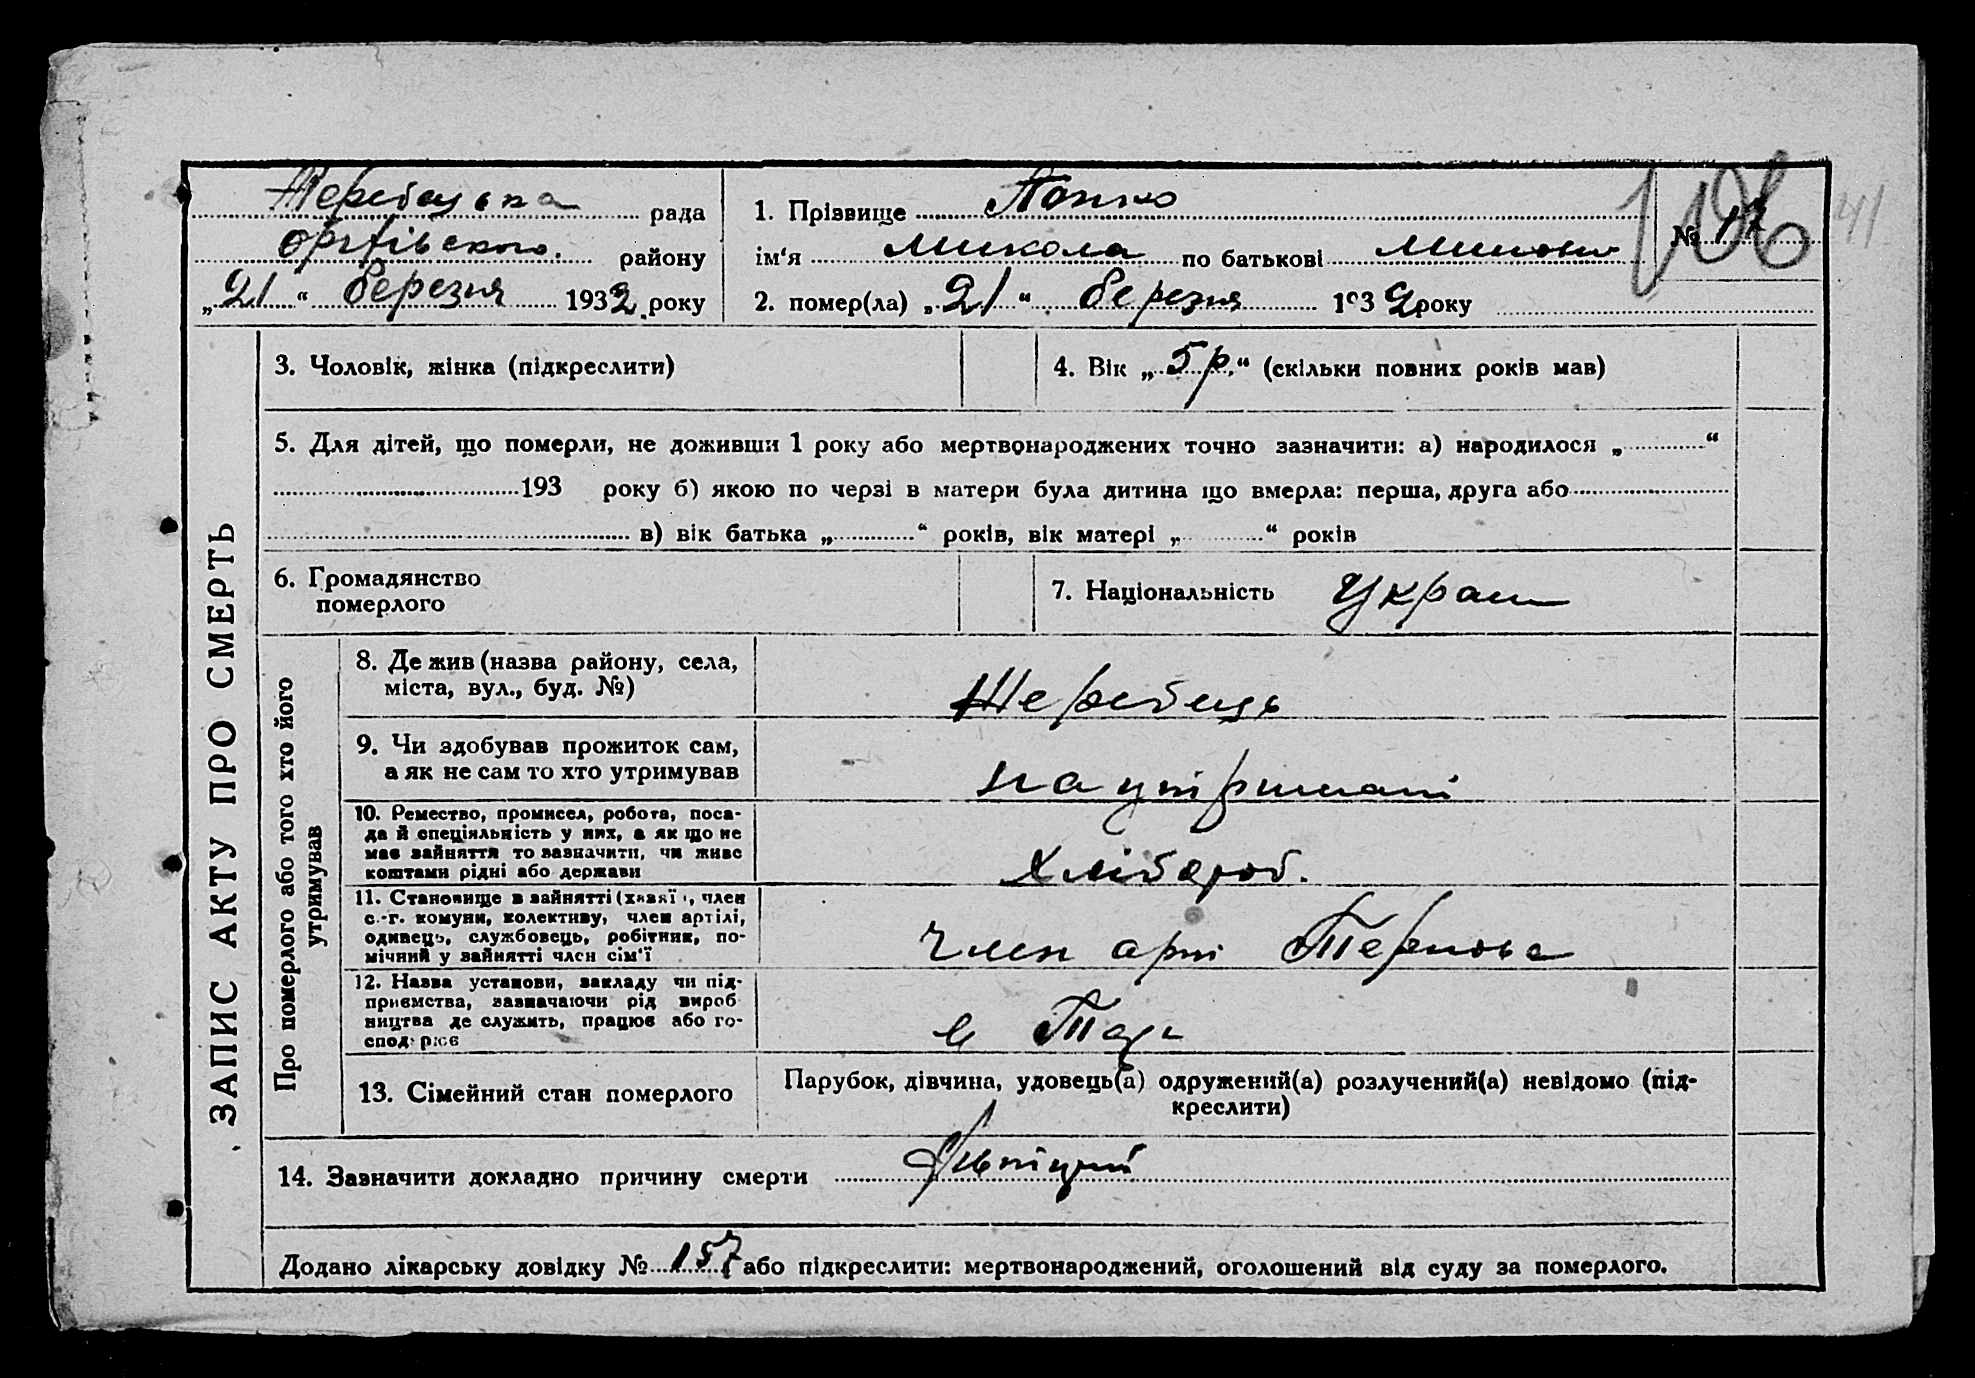 Жеребецька рада
Оріхівського району
„21“ березня 1932 року
1. Прізвище Попко
ім'я Микола по батькові
2. помер(ла) „21“ березня 1932 року
№ 17
106
41
ЗАПИС АКТУ ПРО СМЕРТЬ
3. Чоловік, жінка (підкреслити)
4. Вік „5 р.“ (скільки повних років мав)
5. Для дітей, що померли, не доживши 1 року або мертвонароджених точно зазначити: а) народилося „ “
193 року б) якою по черзі в матери була дитина що вмерла: перша, друга або
в) вік батька „ “ років, вік матері „ “ років
6. Громадянство
померлого
7. Національність Украін
Про померлого або того хто його
утримував
8. Де жив (назва району, села,
міста, вул., буд. №)
Жеребець
9. Чи здобував прожиток сам,
а як не сам то хто утримував
на утримані
10. Ремество, промисел, робота, поса-
да й спеціяльність у них, а як що не
має зайняття то зазначити, чи живе
коштами рідні або держави
Хлібороб.
11. Становище в зайнятті (хазяї , член
с.-г. комуни, колективу, член артілі,
одинець, службовець, робітник, по-
мічний у зайнятті член сім'ї
член арт
12. Назва установи, закладу чи під-
приємства, зазначаючи рід вироб-
ництва де служить, працює або го-
сподарює
13. Сімейний стан померлого
Парубок, дівчина, удовець(а) одружений(а) розлучений(а) невідомо (під-
креслити)
14. Зазначити докладно причину смерти
Додано лікарську довідку № 157 або підкреслити: мертвонароджений, оголошений від суду за померлого.